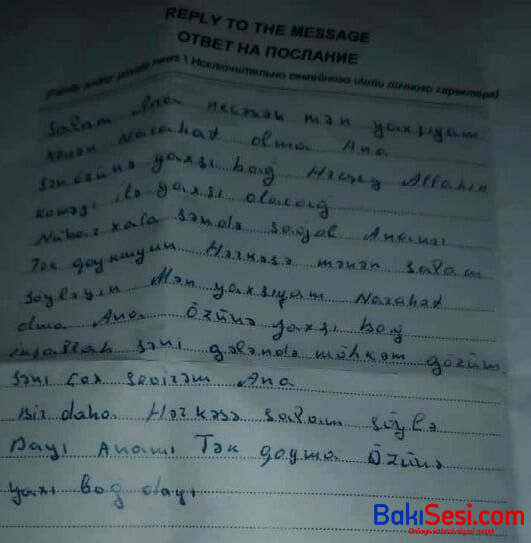 REPLY TO THE MESSAGE
ОТВЕТ НА ПОСЛАНИЕ
(Family and/or private news \ Исключительно семейного и/или личного характера)
Salam Ana necəsən mən yaxşıyam
Mənən Narahat olma Ana
Sən özünə yaxşı bağ Hərşey Allahın
Koməgi ilə yaxşı olacağ
Nübar xala səndə sağol Anamı
Tək qoymuyun Hərkəsə mənən salam
söyləyin Mən yaxşıyam Narahat
olma Ana Özünə yaxşı bağ
inşallah səni gələndə möhkəm
səni çox sevirəm Ana
Bir daha Hərkəsə salam söylə
Dayı Anamı Tək qoyma Özünə
yaxı bağ dayı
BakıSesi.com